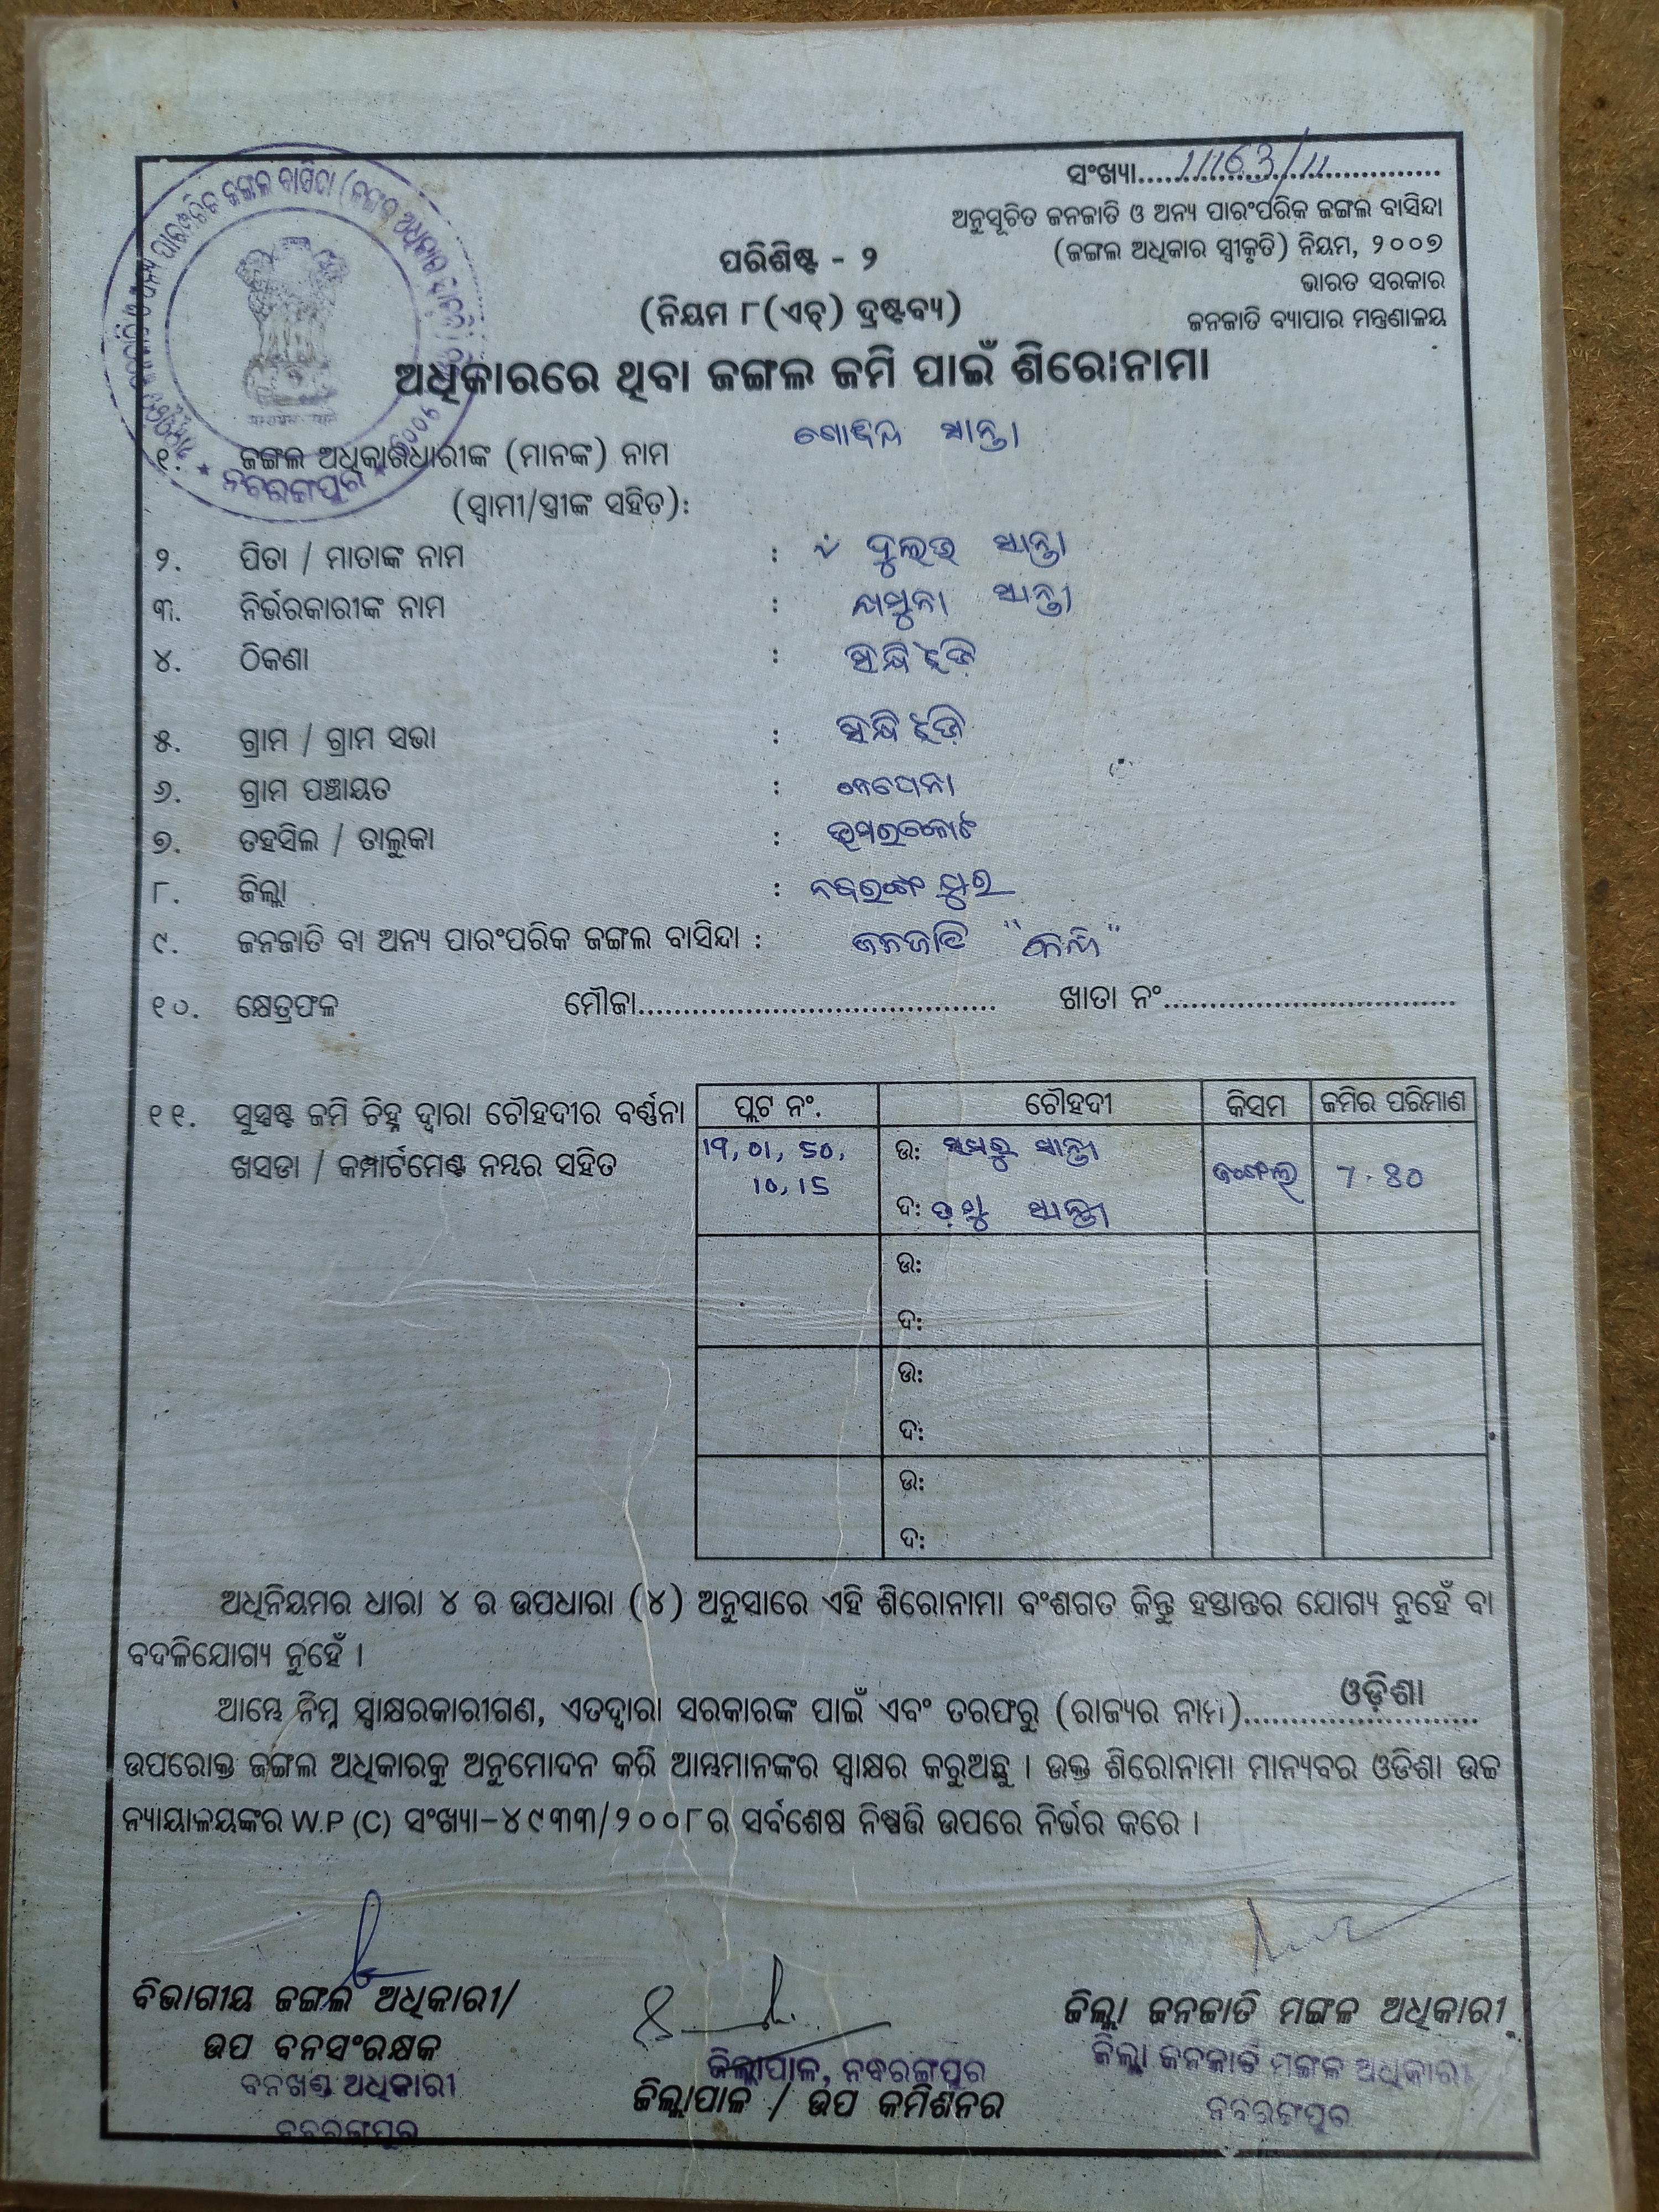 ସଂଖ୍ୟା....11163/11....
ଅନୁସୂଚିତ ଜନଜାତି ଓ ଅନ୍ୟ ପାରଂପରିକ ଜଙ୍ଗଲ ବାସିନ୍ଦା
(ଜଙ୍ଗଲ ଅଧିକାର ସ୍ୱୀକୃତି) ନିୟମ, ୨୦୦୭
ଭାରତ ସରକାର
ଜନଜାତି ବ୍ୟାପାର ମନ୍ତ୍ରଣାଳୟ
ପରିଶିଷ୍ଟ - ୨
(ନିୟମ ୮(ଏଚ୍) ଦ୍ରଷ୍ଟବ୍ୟ)
ଅଧିକାରରେ ଥିବା ଜଙ୍ଗଲ ଜମି ପାଇଁ ଶିରୋନାମା
ନବରଙ୍ଗପୁର
୧. ଜଙ୍ଗଲ ଅଧିକାରଧାରୀଙ୍କ (ମାନଙ୍କ) ନାମ ସାନ୍ତା
(ସ୍ୱାମୀ/ସ୍ତ୍ରୀଙ୍କ ସହିତ):
୨. ପିତା / ମାତାଙ୍କ ନାମ : ସାନ୍ତା
୩. ନିର୍ଭରକାରୀଙ୍କ ନାମ : ଯମୁନା ସାନ୍ତା
୪. ଠିକଣା :
୫. ଗ୍ରାମ / ଗ୍ରାମ ସଭା :
୬. ଗ୍ରାମ ପଞ୍ଚାୟତ :
୭. ତହସିଲ / ତାଲୁକା : ଉମରକୋଟ
୮. ଜିଲ୍ଲା : ନବରଙ୍ଗପୁର
୯. ଜନଜାତି ବା ଅନ୍ୟ ପାରଂପରିକ ଜଙ୍ଗଲ ବାସିନ୍ଦା : ଜନଜାତି
୧୦. କ୍ଷେତ୍ରଫଳ ମୌଜା........ ଖାତା ନଂ........
୧୧. ସୁସ୍ପଷ୍ଟ ଜମି ଚିହ୍ନ ଦ୍ୱାରା ଚୌହଦୀର ବର୍ଣ୍ଣନା
ଖସଡା / କମ୍ପାର୍ଟମେଣ୍ଟ ନମ୍ବର ସହିତ
ପ୍ଲଟ ନଂ. ଚୌହଦୀ କିସମ ଜମିର ପରିମାଣ
ଉ: ସାନ୍ତା
10, 15 ଜଙ୍ଗଲ
ଦ: ସାନ୍ତା
ଉ:
ଦ:
ଉ:
ଦ:
ଉ:
ଦ:
ଅଧିନିୟମର ଧାରା ୪ ର ଉପଧାରା (୪) ଅନୁସାରେ ଏହି ଶିରୋନାମା ବଂଶଗତ କିନ୍ତୁ ହସ୍ତାନ୍ତର ଯୋଗ୍ୟ ନୁହେଁ ବା
ବଦଳିଯୋଗ୍ୟ ନୁହେଁ ।
ଆମ୍ଭେ ନିମ୍ନ ସ୍ୱାକ୍ଷରକାରୀଗଣ, ଏତଦ୍ୱାରା ସରକାରଙ୍କ ପାଇଁ ଏବଂ ତରଫରୁ (ରାଜ୍ୟର ନାମ)....ଓଡ଼ିଶା....
ଉପରୋକ୍ତ ଜଙ୍ଗଲ ଅଧିକାରକୁ ଅନୁମୋଦନ କରି ଆମ୍ଭମାନଙ୍କର ସ୍ୱାକ୍ଷର କରୁଅଛୁ । ଉକ୍ତ ଶିରୋନାମା ମାନ୍ୟବର ଓଡିଶା ଉଚ୍ଚ
ନ୍ୟାୟାଳୟଙ୍କର W.P (C) ସଂଖ୍ୟା-୪୯୩୩/୨୦୦୮ର ସର୍ବଶେଷ ନିଷ୍ପତ୍ତି ଉପରେ ନିର୍ଭର କରେ ।
ବିଭାଗୀୟ ଜଙ୍ଗଲ ଅଧିକାରୀ/
ଉପ ବନସଂରକ୍ଷକ
ବନଖଣ୍ଡ ଅଧିକାରୀ
ନବରଙ୍ଗପୁର
ଜିଲ୍ଲାପାଳ, ନବରଙ୍ଗପୁର
ଜିଲ୍ଲାପାଳ / ଉପ କମିଶନର
ଜିଲ୍ଲା ଜନଜାତି ମଙ୍ଗଳ ଅଧିକାରୀ
ଜିଲ୍ଲା ଜନଜାତି ମଙ୍ଗଳ ଅଧିକାରୀ
ନବରଙ୍ଗପୁର